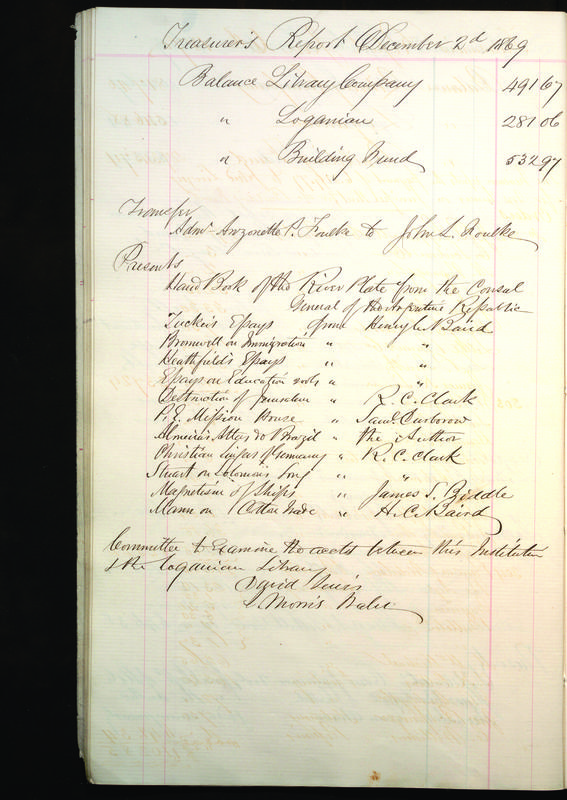 Treasurer's Report December 2d 1869
Balance Library Company 491 67
" Loganian 281 06
" Building Fund 532 97
Transfer
Adm. Anzonetta P. Foulke to John L. Foulke
Presents
Hand Book of the River Plate from the Consul
General of the Argentine Republic
Tucker's Essays from Henry C Baird
Bromwell on Immigration " "
Heathfield's Essays " "
Essays on Education " "
Destruction of Jerusalem " R. C. Clark
P. E. Mission House " Saml. Durborow
Almeida's Atlas do Brazil " the Author
Christian Singers of Germany " R. C. Clark
Stuart on Solomon's Song " "
Magnetism of Ships " James S. Biddle
Mann on Cotton Trade " H. C. Baird
Committee to Examine the accts between this Institution
& the Loganian Library
David Lewis
S. Morris Waln